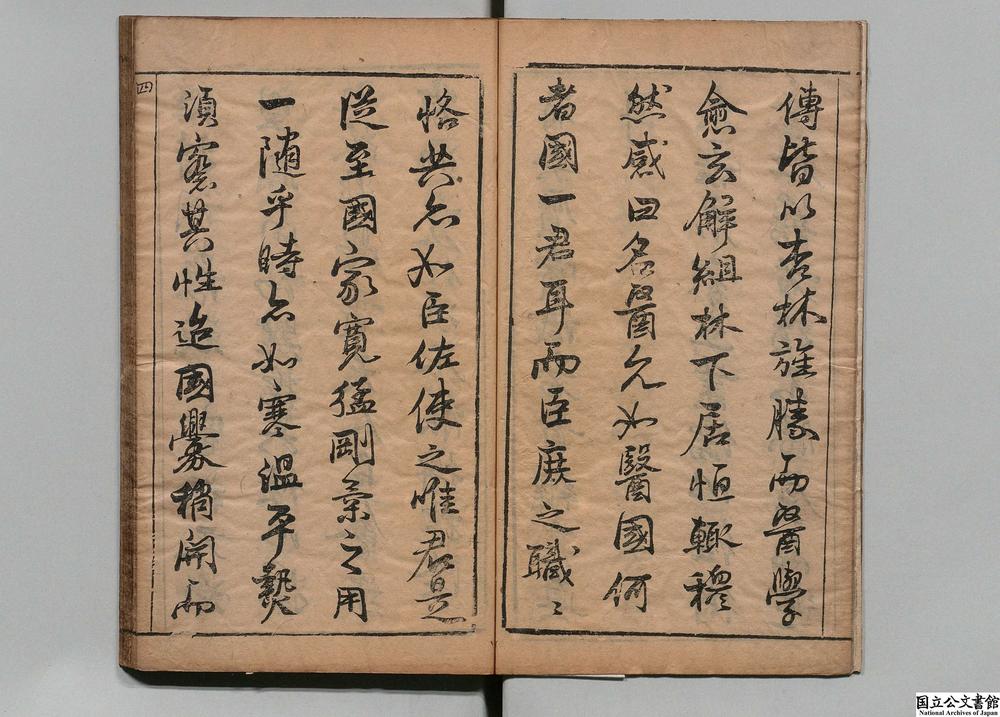 傳皆以杏林旌勝而醫學
愈玄解組林下居恒輙穆
然感曰名醫元如醫國何
者國一君耳而臣庶之職〻
恪共亦如臣佐使之惟君是
從至國家寛猛剛柔之用
一随乎時亦如寒溫平熱
須察其性迨國釁稍開而
四
国立公文書館
National Archives of Japan